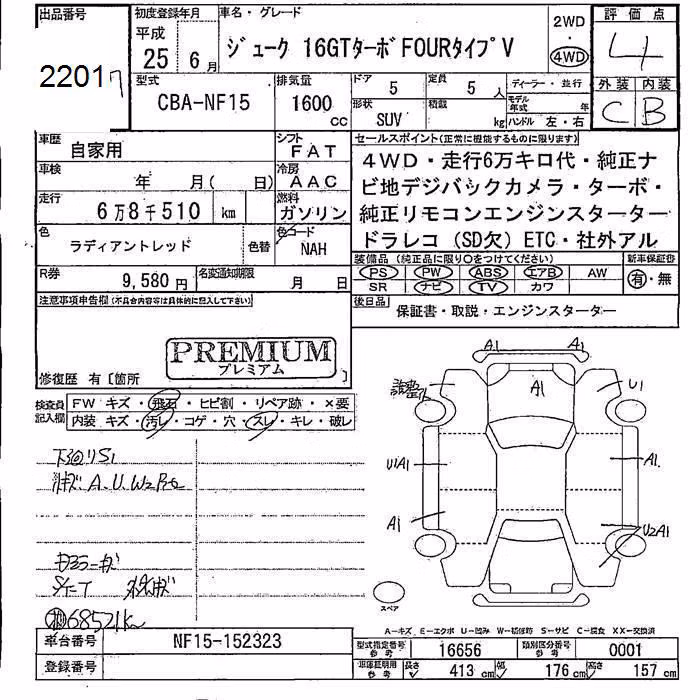 出品番号
22017
初度登録年月
平成
25 6月
車名・グレード
ジューク 16GTターボFOURタイプV
2WD
・
4WD
評価点
4
外装 内装
C B
型式
CBA-NF15
排気量
1600 cc
ドア
5
定員
5人
形状
SUV
積載
kg
ディーラー・並行
モデル年式 年
ハンドル 左・右
車歴
自家用
シフト
FAT
車検
年 月( 日)
冷房
AAC
走行
6万8千510 km
燃料
ガソリン
色
ラディアントレッド
色替
色コード
NAH
R券
9,580円
名変通知期限
月 日
セールスポイント(正常に機能するものに限ります)
4WD・走行6万キロ代・純正ナ
ビ地デジバックカメラ・ターボ・
純正リモコンエンジンスターター
ドラレコ(SD欠)ETC・社外アル
装備品(純正品に限り○をつけてください)
新車保証書
PS PW ABS エアB AW
SR ナビ TV カワ
有・無
後日品
保証書・取説・エンジンスターター
注意事項申告欄(不具合内容等は具体的に記入して下さい)
PREMIUM
プレミアム
修復歴 有〔箇所 〕
検査員記入欄
FW キズ・飛石・ヒビ割・リペア跡・×要
内装 キズ・汚レ・コゲ・穴・スレ・キレ・破レ
下廻りS1
A.U.W2
68521km
A1 A1
A1
U1
U1A1
A1
A1
U2A1
スペア
A-キズ E-エクボ U-凹み W-補修跡 S-サビ C-腐食 XX-交換済
車台番号
NF15-152323
登録番号
型式指定番号 参考
16656
類別区分番号 参考
0001
車庫証明用 参考
長さ 413 cm 幅 176 cm 高さ 157 cm